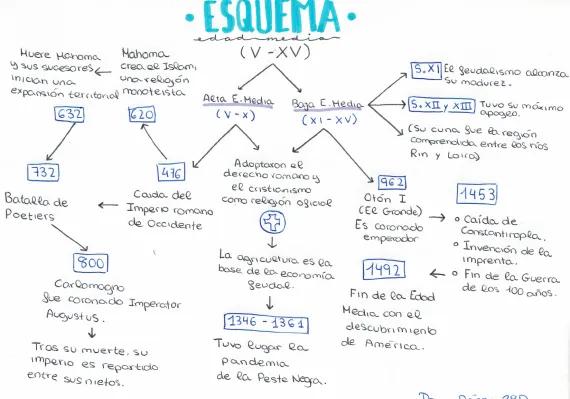 • ESQUEMA •
edad media
(V - XV)
Muere Mahoma
y sus sucesores
inician una
expansión territorial
632
Mahoma
crea el Islam,
una religión
monoteista
620
Alta E. Media
(V - X)
Baja E. Media
(XI - XV)
S. XI El feudalismo alcanza
su madurez.
S. XII y XIII Tuvo su máximo
apogeo.
(Su cuna fue la región
comprendida entre los ríos
Rin y Loira)
732
Batalla de
Poetiers
476
Caída del
Imperio romano
de Occidente
Adoptaron el
derecho romano y
el cristianismo
como religión oficial
962
Otón I
(El Grande)
Es coronado
emperador
1453
Caída de
Constantinopla.
Invención de la
imprenta.
Fin de la Guerra
de los 100 años.
800
Carlomagno
fue coronado Imperator
Augustus.
Tras su muerte, su
imperio es repartido
entre sus nietos.
La agricultura es la
base de la economía
feudal.
1346 - 1361
Tuvo lugar la
pandemia
de la Peste Negra.
1492
Fin de la Edad
Media con el
descubrimiento
de América.